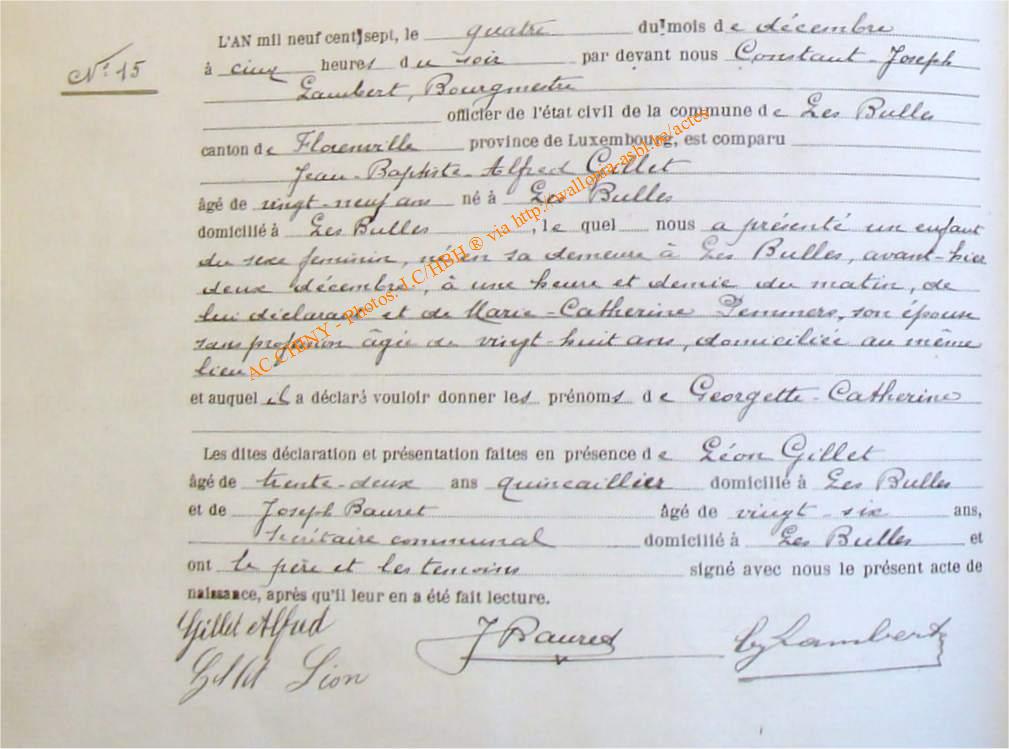 N° 15
L'AN mil neuf cent sept, le quatre du mois de décembre
à cinq heures du soir par devant nous Constant-Joseph
Lambert, Bourgmestre
officier de l'état civil de la commune de Les Bulles
canton de Florenville province de Luxembourg, est comparu
Jean-Baptiste-Alfred Gillet
âgé de vingt-neuf ans né à Les Bulles
domicilié à Les Bulles, le quel nous a présenté un enfant
du sexe feminin, né en sa demeure à Les Bulles, avant-hier
deux décembre, à une heure et demie du matin, de
lui déclarant et de Marie-Catherine Pemmers, son épouse
sans profession âgée de vingt-huit ans, domiciliée au même
lieu
et auquel il a déclaré vouloir donner les prénoms de Georgette-Catherine
Les dites déclaration et présentation faites en présence de Léon Gillet
âgé de trente-deux ans quincaillier domicilié à Les Bulles
et de Joseph Bauret âgé de vingt-six ans,
secrétaire communal domicilié à Les Bulles et
ont le père et les temoins signé avec nous le présent acte de
naissance, après qu'il leur en a été fait lecture.
Gillet Alfred J Bauret Lambert
Gillet Léon
AC CHINY - Photos: J.C/HBH ® via http://wallonia-asbl.be/actes